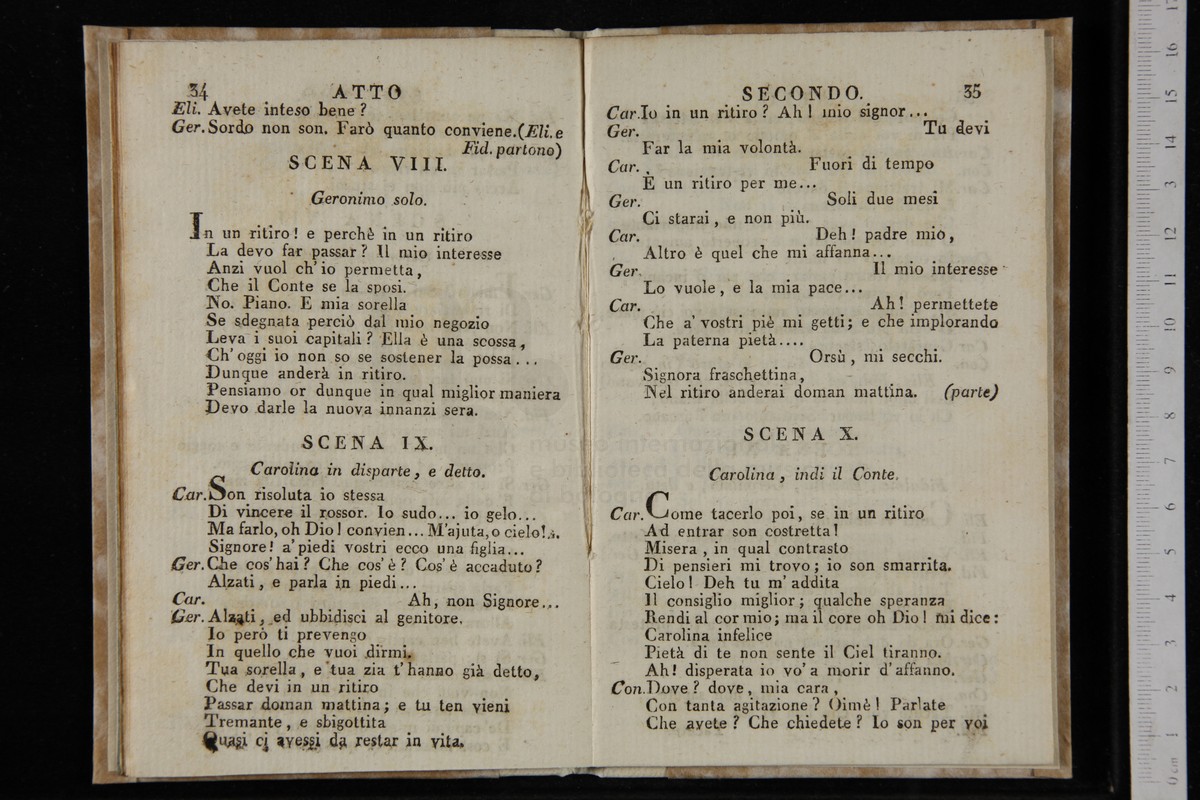 34 ATTO
Eli. Avete inteso bene ?
Ger. Sordo non son. Farò quanto conviene. (Eli. e
Fid. partono)
SCENA VIII.
Geronimo solo.
In un ritiro ! e perchè in un ritiro
La devo far passar ? Il mio interesse
Anzi vuol ch' io permetta,
Che il Conte se la sposi.
No. Piano. E mia sorella
Se sdegnata perciò dal mio negozio
Leva i suoi capitali ? Ella è una scossa,
Ch' oggi io non so se sostener la possa...
Dunque anderà in ritiro.
Pensiamo or dunque in qual miglior maniera
Devo darle la nuova innanzi sera.
SCENA IX.
Carolina in disparte, e detto.
Car. Son risoluta io stessa
Di vincere il rossor. Io sudo... io gelo...
Ma farlo, oh Dio ! convien... M'ajuta, o cielo!..
Signore! a' piedi vostri ecco una figlia...
Ger. Che cos' hai ? Che cos' è ? Cos' è accaduto ?
Alzati, e parla in piedi...
Car. Ah, non Signore...
Ger. Alzati, ed ubbidisci al genitore.
Io però ti prevengo
In quello che vuoi dirmi.
Tua sorella, e tua zia t' hanno già detto,
Che devi in un ritiro
Passar doman mattina; e tu ten vieni
Tremante, e sbigottita
Quasi ci avessi da restar in vita.
SECONDO. 35
Car. Io in un ritiro ? Ah ! mio signor...
Ger. Tu devi
Far la mia volontà.
Car. Fuori di tempo
È un ritiro per me...
Ger. Soli due mesi
Ci starai, e non più.
Car. Deh ! padre mio,
Altro è quel che mi affanna...
Ger. Il mio interesse
Lo vuole, e la mia pace...
Car. Ah ! permettete
Che a' vostri piè mi getti; e che implorando
La paterna pietà....
Ger. Orsù, mi secchi.
Signora fraschettina,
Nel ritiro anderai doman mattina. (parte)
SCENA X.
Carolina, indi il Conte.
Car. Come tacerlo poi, se in un ritiro
Ad entrar son costretta !
Misera, in qual contrasto
Di pensieri mi trovo; io son smarrita.
Cielo ! Deh tu m' addita
Il consiglio miglior; qualche speranza
Rendi al cor mio; ma il core oh Dio ! mi dice:
Carolina infelice
Pietà di te non sente il Ciel tiranno.
Ah! disperata io vo' a morir d' affanno.
Con. Dove ? dove, mia cara,
Con tanta agitazione ? Oimè ! Parlate
Che avete ? Che chiedete ? Io son per voi